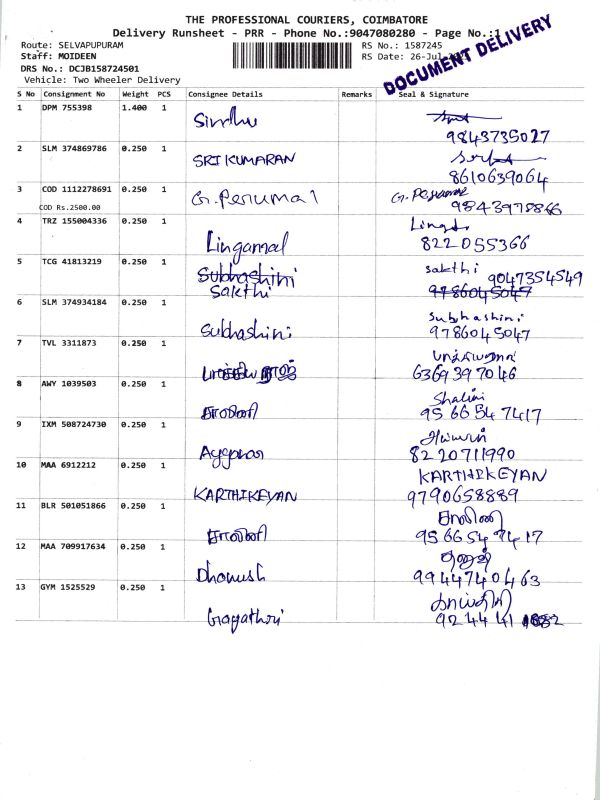 THE PROFESSIONAL COURIERS, COIMBATORE
Delivery Runsheet - PRR - Phone No.:9047080280 - Page No.:1
DOCUMENT DELIVERY
Route: SELVAPUPURAM
RS No.: 1587245
Staff: MOIDEEN
RS Date: 26-Jul-
DRS No.: DCJB158724501
Vehicle: Two Wheeler Delivery
S No Consignment No Weight PCS Consignee Details Remarks Seal & Signature
1 DPM 755398 1.400 1 Sindhu
9843735027
2 SLM 374869786 0.250 1 SRI KUMARAN
8610639064
3 COD 1112278691 0.250 1 G. Perumal G. Perumal
COD Rs.2500.00 9843978866
4 TRZ 155004336 0.250 1 Lingamal
822055366
5 TCG 41813219 0.250 1 Subhashini sakthi 9047354549
Sakthi 9786045047
6 SLM 374934184 0.250 1 Subhashini Subhashini
9786045047
7 TVL 3311873 0.250 1
6369397046
8 AWY 1039503 0.250 1 சாலினி Shalini
9566547417
9 IXM 508724730 0.250 1
8220711990
10 MAA 6912212 0.250 1 KARTHIKEYAN KARTHIKEYAN
9790658889
11 BLR 501051866 0.250 1 சாலினி சாலினி
9566547417
12 MAA 709917634 0.250 1 Dhanush தனுஷ்
9944740463
13 GYM 1525529 0.250 1 Gayathri காயத்திரி
924441